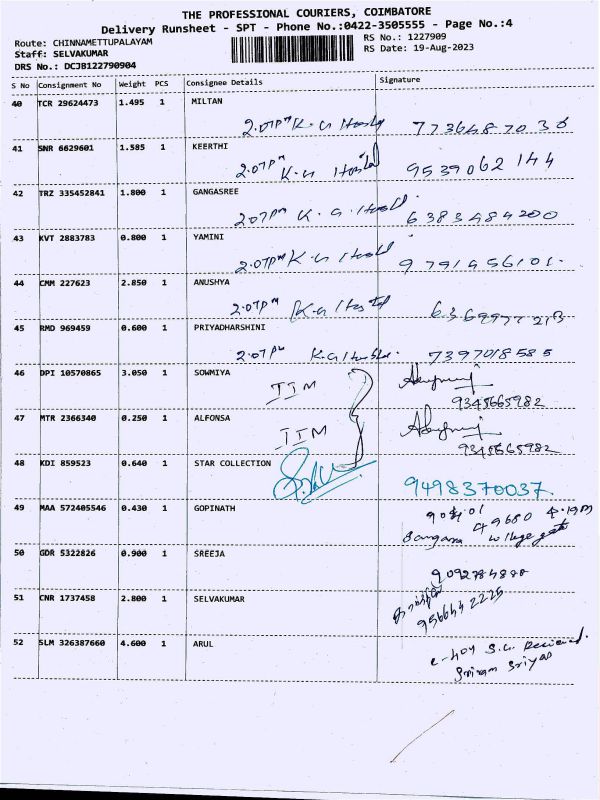 THE PROFESSIONAL COURIERS, COIMBATORE
Delivery Runsheet - SPT - Phone No.:0422-3505555 - Page No.:4
Route: CHINNAMETTUPALAYAM
RS No.: 1227909
Staff: SELVAKUMAR
RS Date: 19-Aug-2023
DRS No.: DCJB122790904
S No Consignment No Weight PCS Consignee Details Signature
40 TCR 29624473 1.495 1 MILTAN
2.07pm K.G Hostel 7736487036
41 SNR 6629601 1.585 1 KEERTHI
2.07pm K.G Hostel 9539062144
42 TRZ 335452841 1.800 1 GANGASREE
2.07pm K.G. Hostel 6383484200
43 KVT 2883783 0.800 1 YAMINI
2.07pm K.G Hostel 9791956101.
44 CMM 227623 2.850 1 ANUSHYA
2.07pm K.G Hostel
45 RMD 969459 0.600 1 PRIYADHARSHINI
2.07pm K.G Hostel. 7397018585
46 DPI 10570865 3.050 1 SOWMIYA
IIM
9345665982
47 MTR 2366340 0.250 1 ALFONSA
IIM
9345665982
48 KDI 859523 0.640 1 STAR COLLECTION
9498370037.
49 MAA 572405546 0.430 1 GOPINATH
49680 4.19pm
gate
50 GDR 5322826 0.900 1 SREEJA
51 CNR 1737458 2.800 1 SELVAKUMAR
9566642225
52 SLM 326387660 4.600 1 ARUL
C-404 S.G. Received.
Sriram